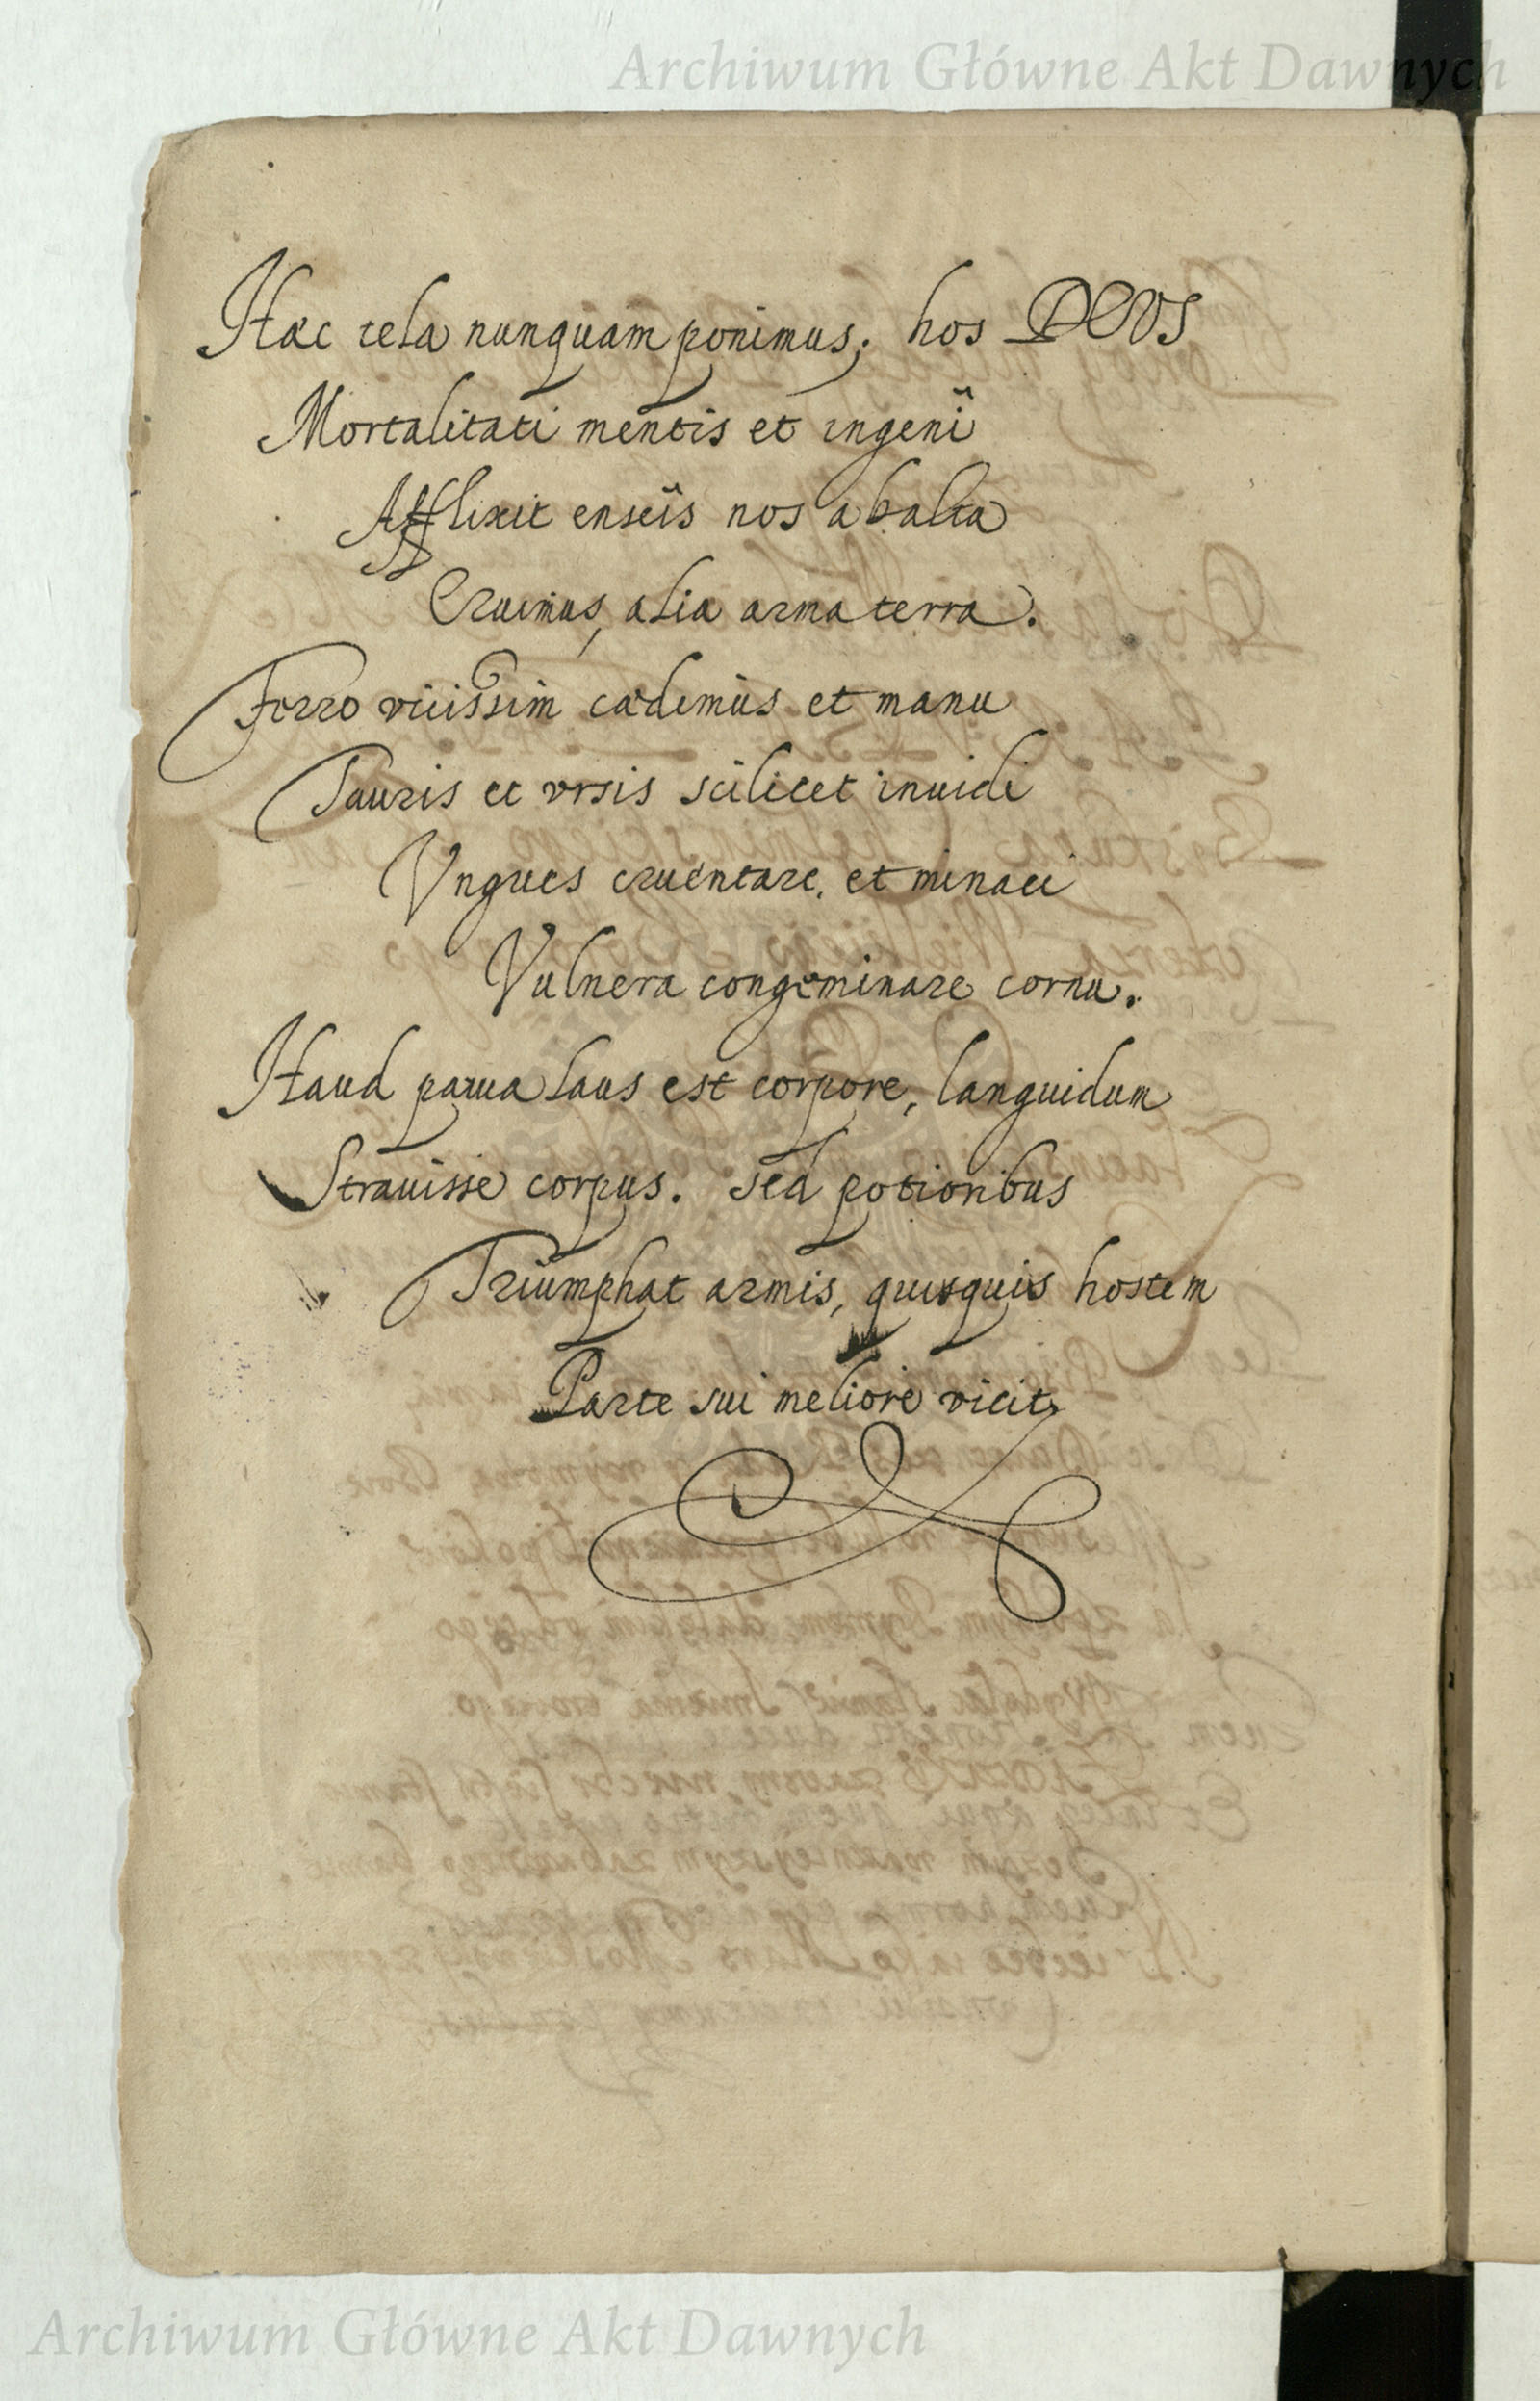 Archiwum Główne Akt Dawnych
Hæc tela nunquam ponimus; hos DEVS
Mortalitati mentis et ingenÿ
Afflixit enseis nos ab alta
Eruimus, alia arma terra.
Ferro vicissim cædimus et manu
Tauris et vrsis scilicet inuidi
Vngues cruentare, et minaci
Vulnera congeminare cornu.
Haud parua laus est corpore, languidum
Strauisse corpus. sed potioribus
Triumphat armis, quisquis hostem
Parte sui meliore vicit
Archiwum Główne Akt Dawnych